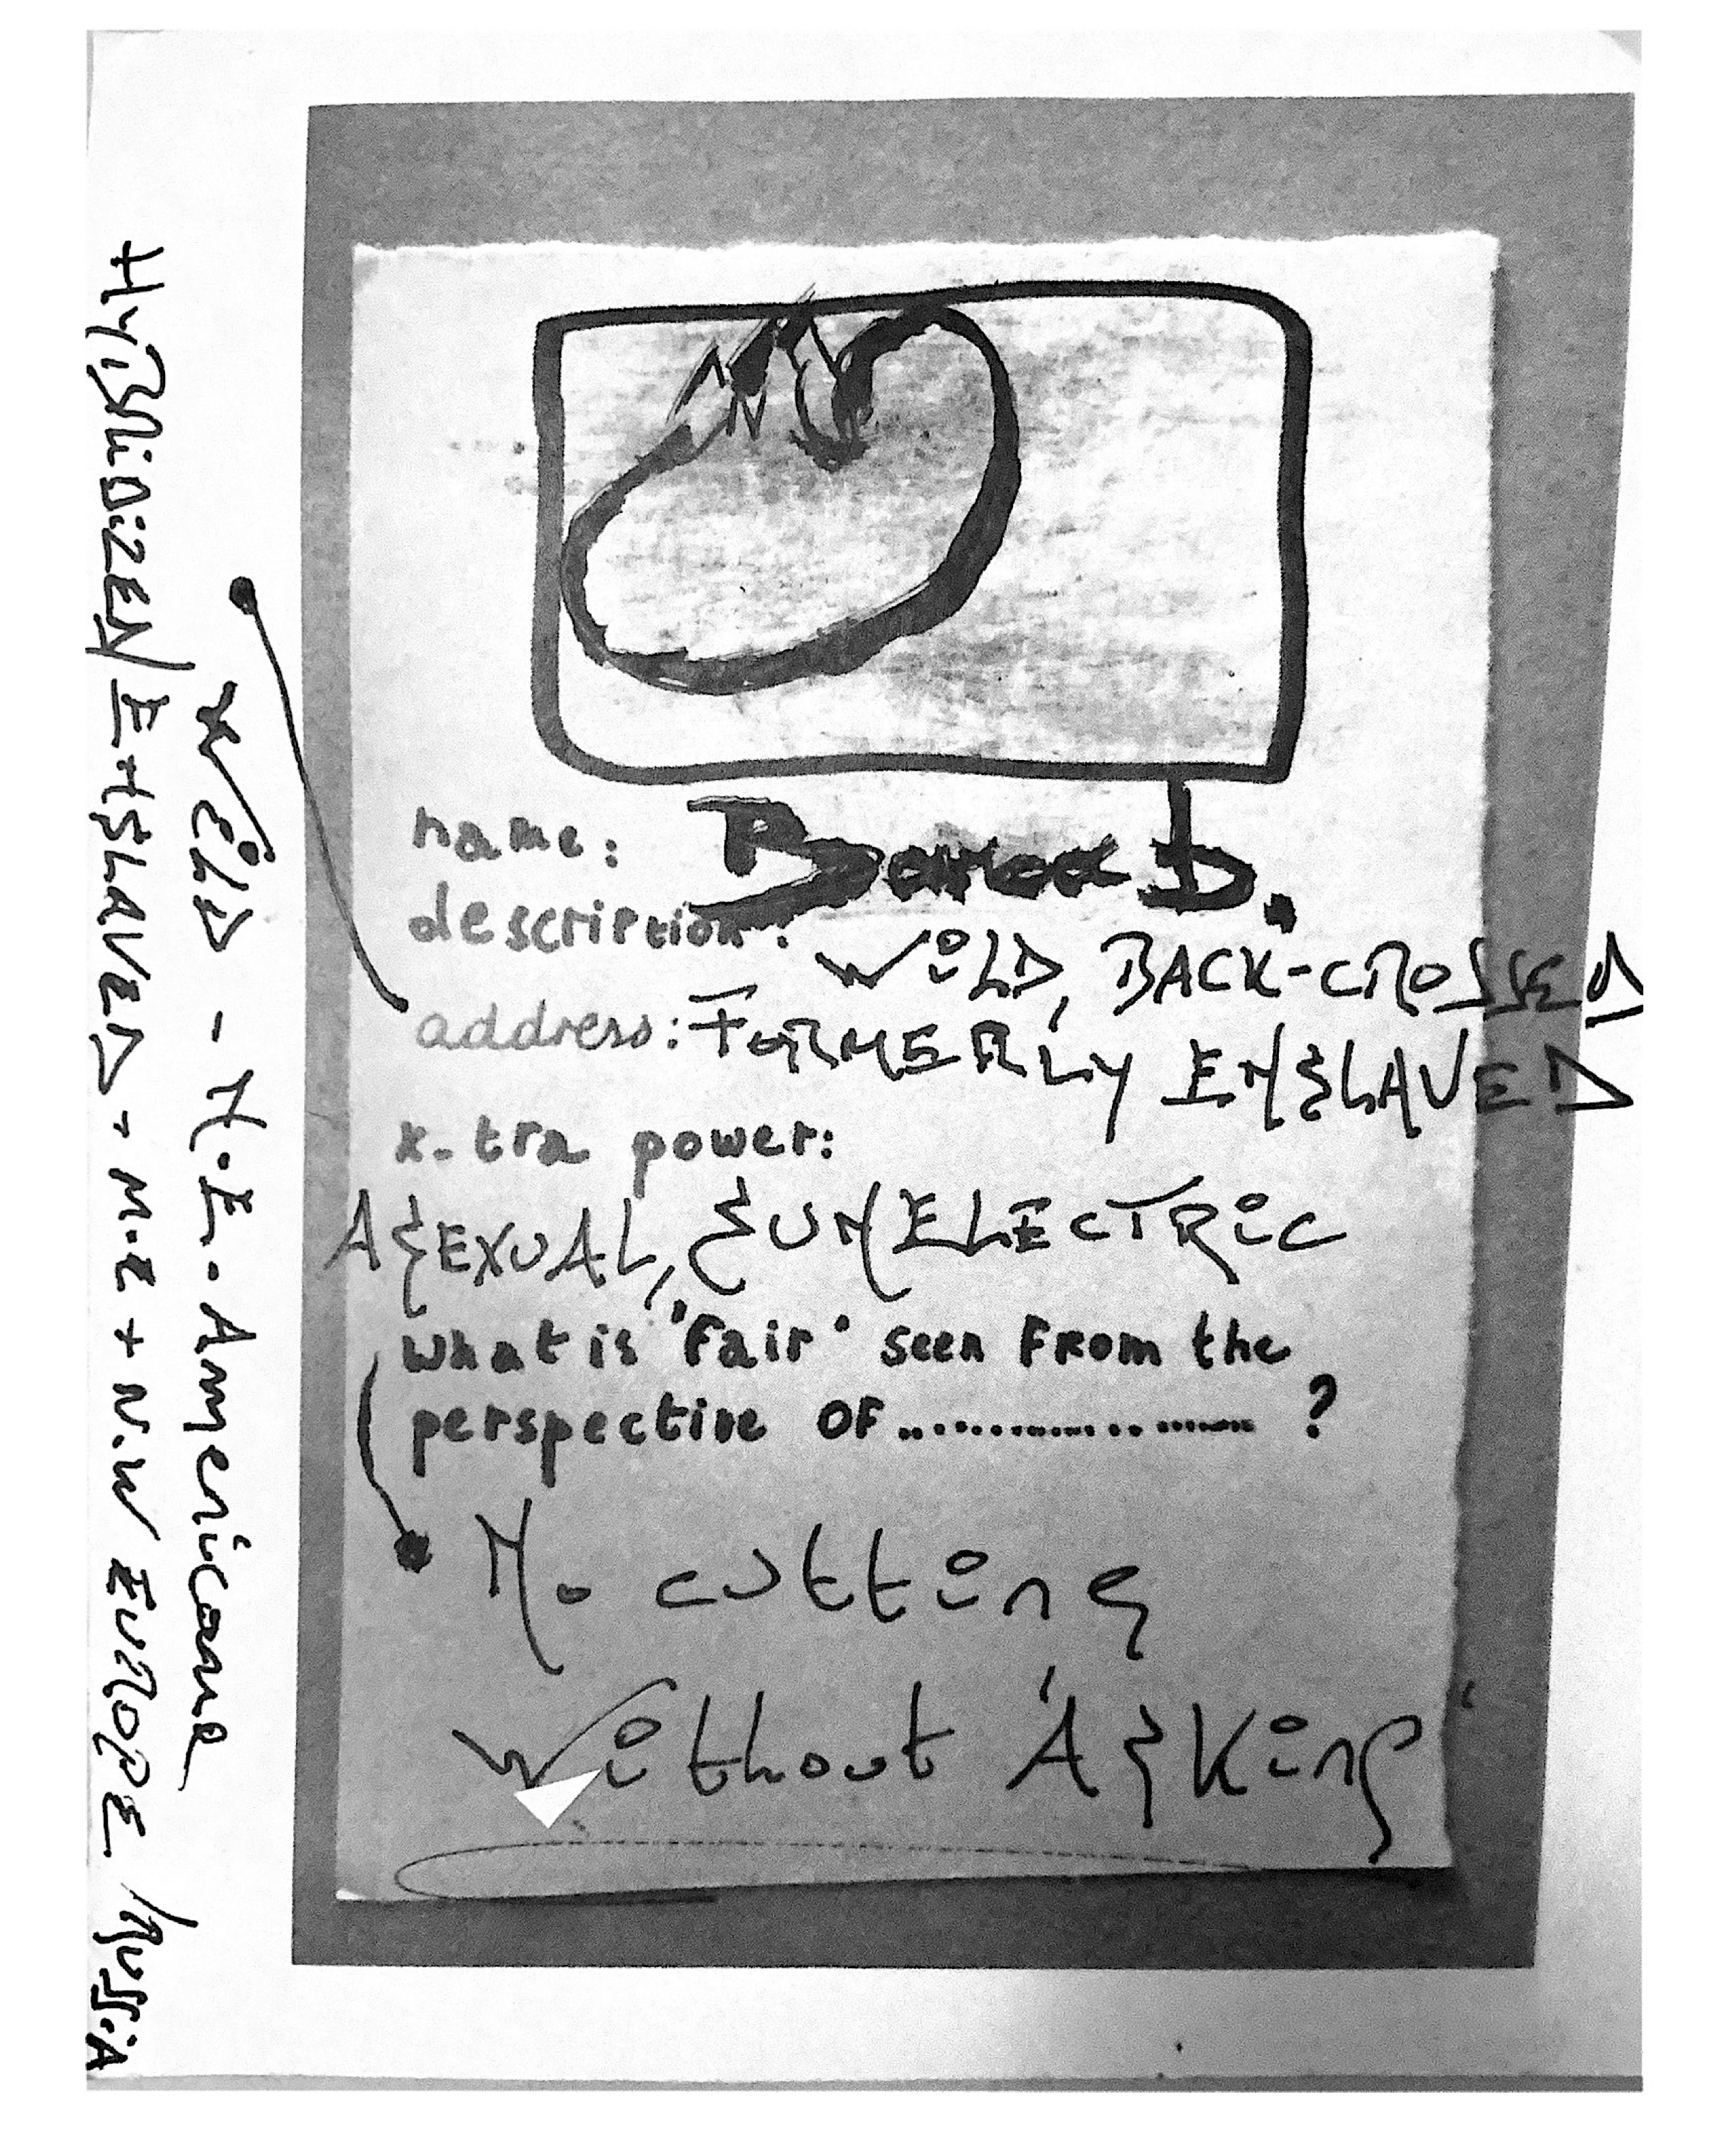 name:
description:
WiLD, BACK-CROSSED
address: FORMERLY ENSLAVED
x-tra power:
ASEXUAL, SUNELECTRiC
What is "Fair" seen From the
perspective OF .................... ?
No cutting
Without 'ASKing'
WiLD - N.E. Americane
HYBRiDiZED/ENSLAVED - M.E + N.W EUROPE /RUSSiA